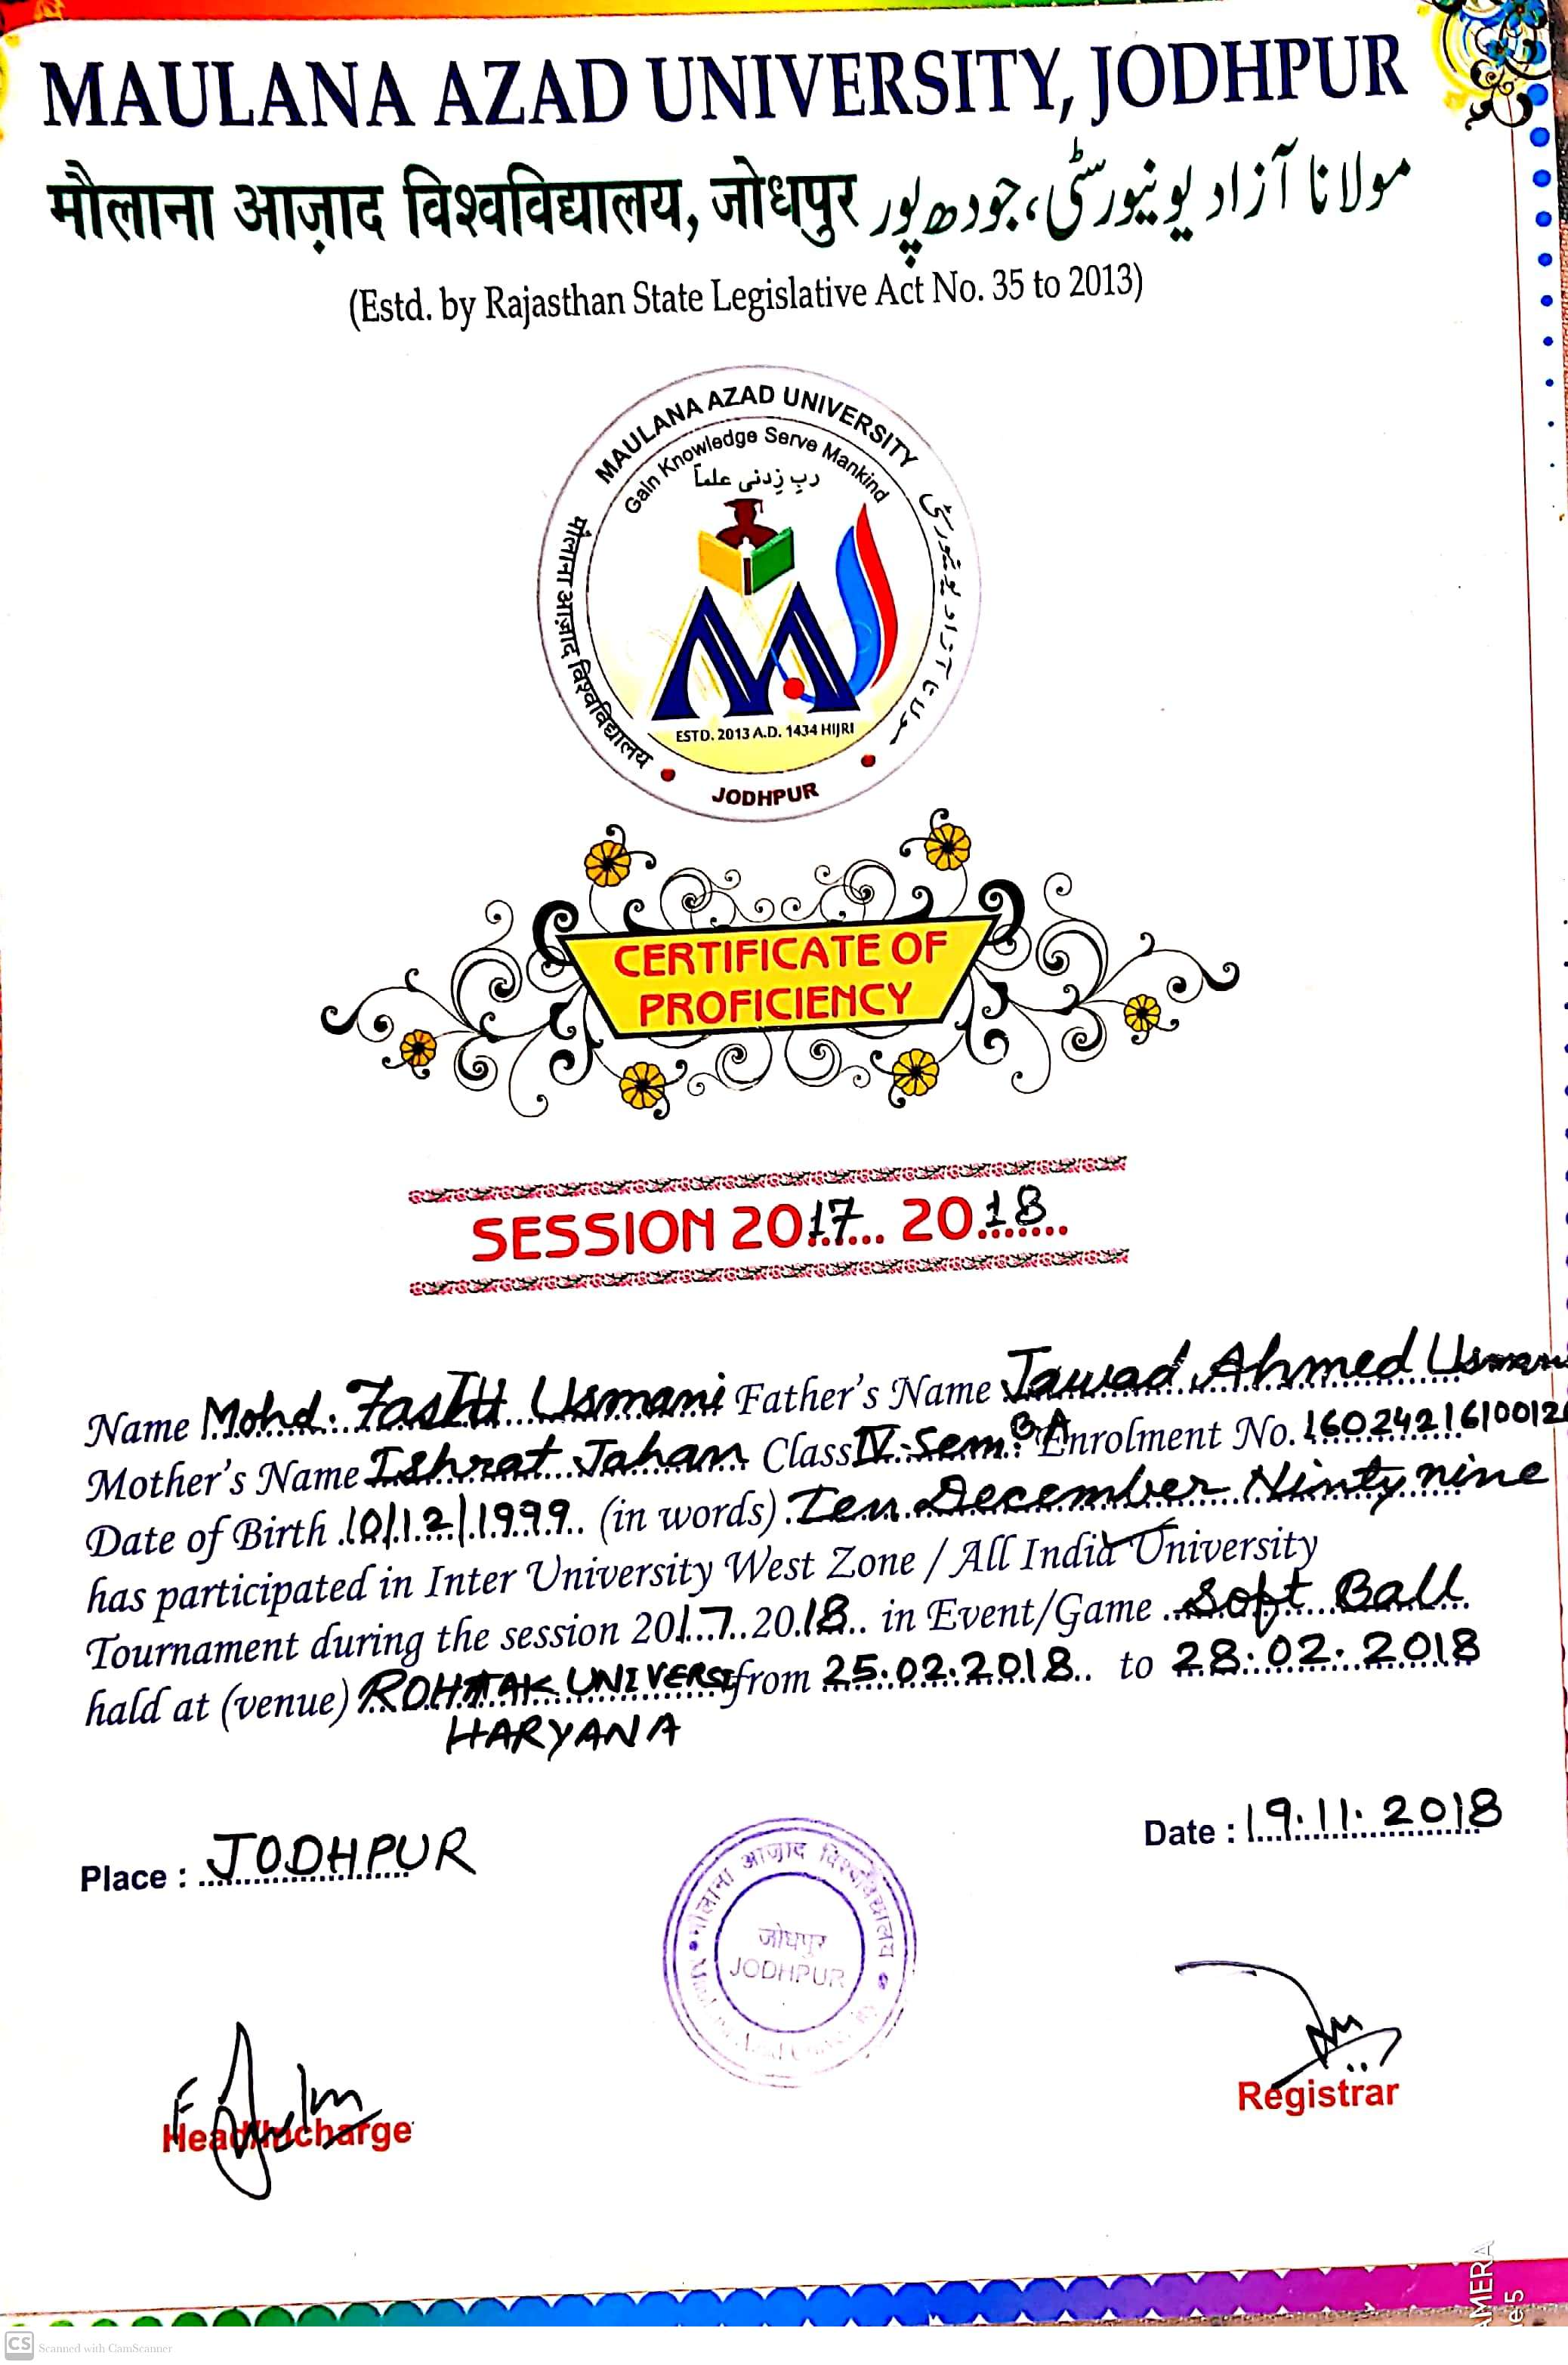 MAULANA AZAD UNIVERSITY, JODHPUR
मौलाना आज़ाद विश्वविद्यालय, जोधपुर مولانا آزاد یونیورسٹی، جودھپور
(Estd. by Rajasthan State Legislative Act No. 35 to 2013)
MAULANA AZAD UNIVERSITY
Gain Knowledge Serve Mankind
ربِ زِدنی علماً
मौलाना आज़ाद विश्वविद्यालय
مولانا آزاد یونیورسٹی
ESTD. 2013 A.D. 1434 HIJRI
JODHPUR
CERTIFICATE OF
PROFICIENCY
SESSION 2017 2018
Name Mohd. Usmani Father's Name Jawad Ahmed Usmani
Mother's Name Ishrat Jahan Class IV Sem. BA Enrolment No.
Date of Birth 10/12/1999 (in words) Ten December Ninty nine
has participated in Inter University West Zone / All India University
Tournament during the session 2017 2018 in Event/Game Soft Ball
hald at (venue) ROHTAK from 25.02.2018 to 28.02.2018
HARYANA
Place : JODHPUR
Date : 19.11.2018
मौलाना आज़ाद विश्वविद्यालय
जोधपुर
JODHPUR
Head/Incharge
Registrar
CS Scanned with CamScanner